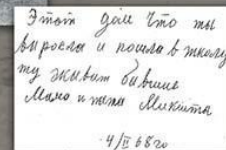 Этот дом что ты
выросла и пошла в школу
ту живут бывшие
Мама и тетя Микита
4/II 68 го